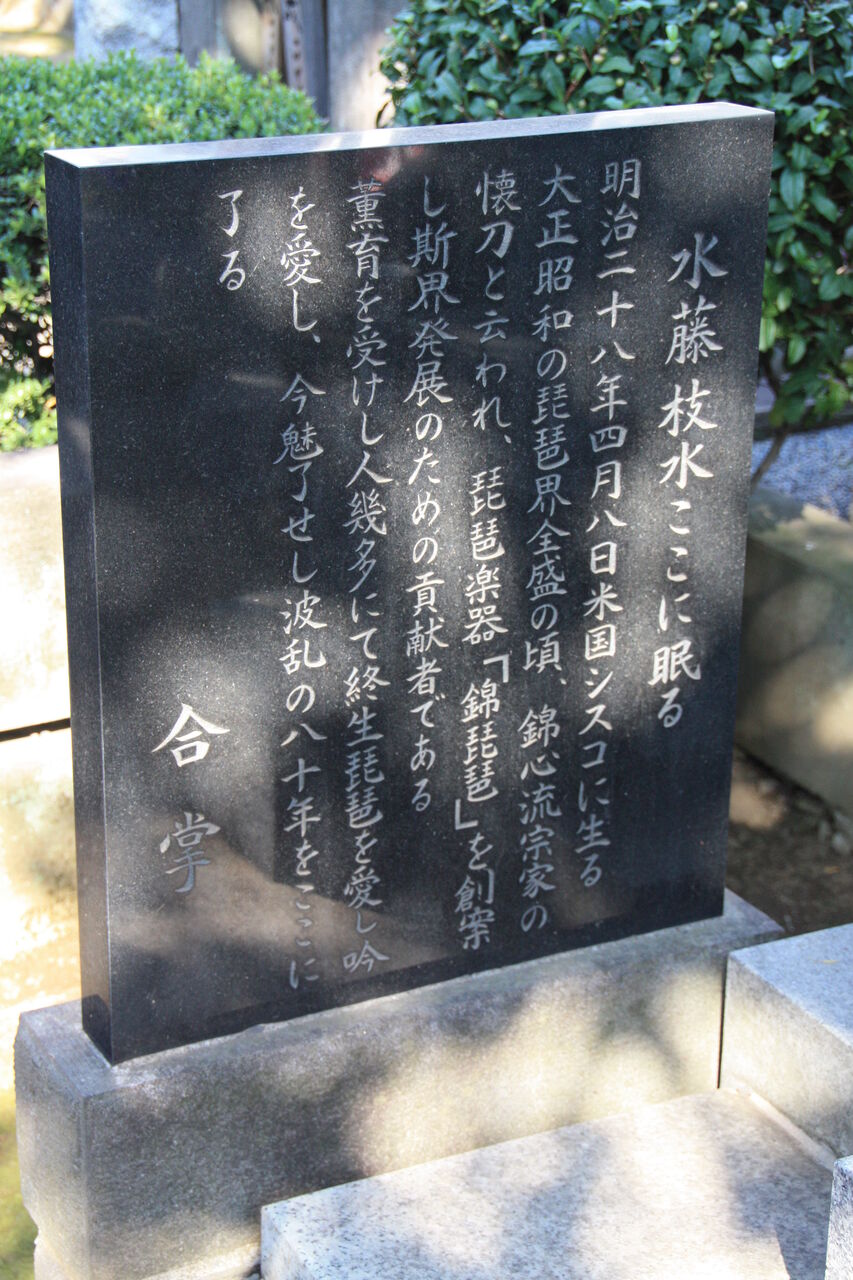 水藤枝水ここに眠る
明治二十八年四月八日米国シスコに生る
大正昭和の琵琶界全盛の頃、錦心流宗家の
懐刀と云われ、琵琶楽器「錦琵琶」を創案
し斯界発展のための貢献者である
薫育を受けし人幾多にて終生琵琶を愛し吟
を愛し、今魅了せし波乱の八十年をここに
了る
合掌